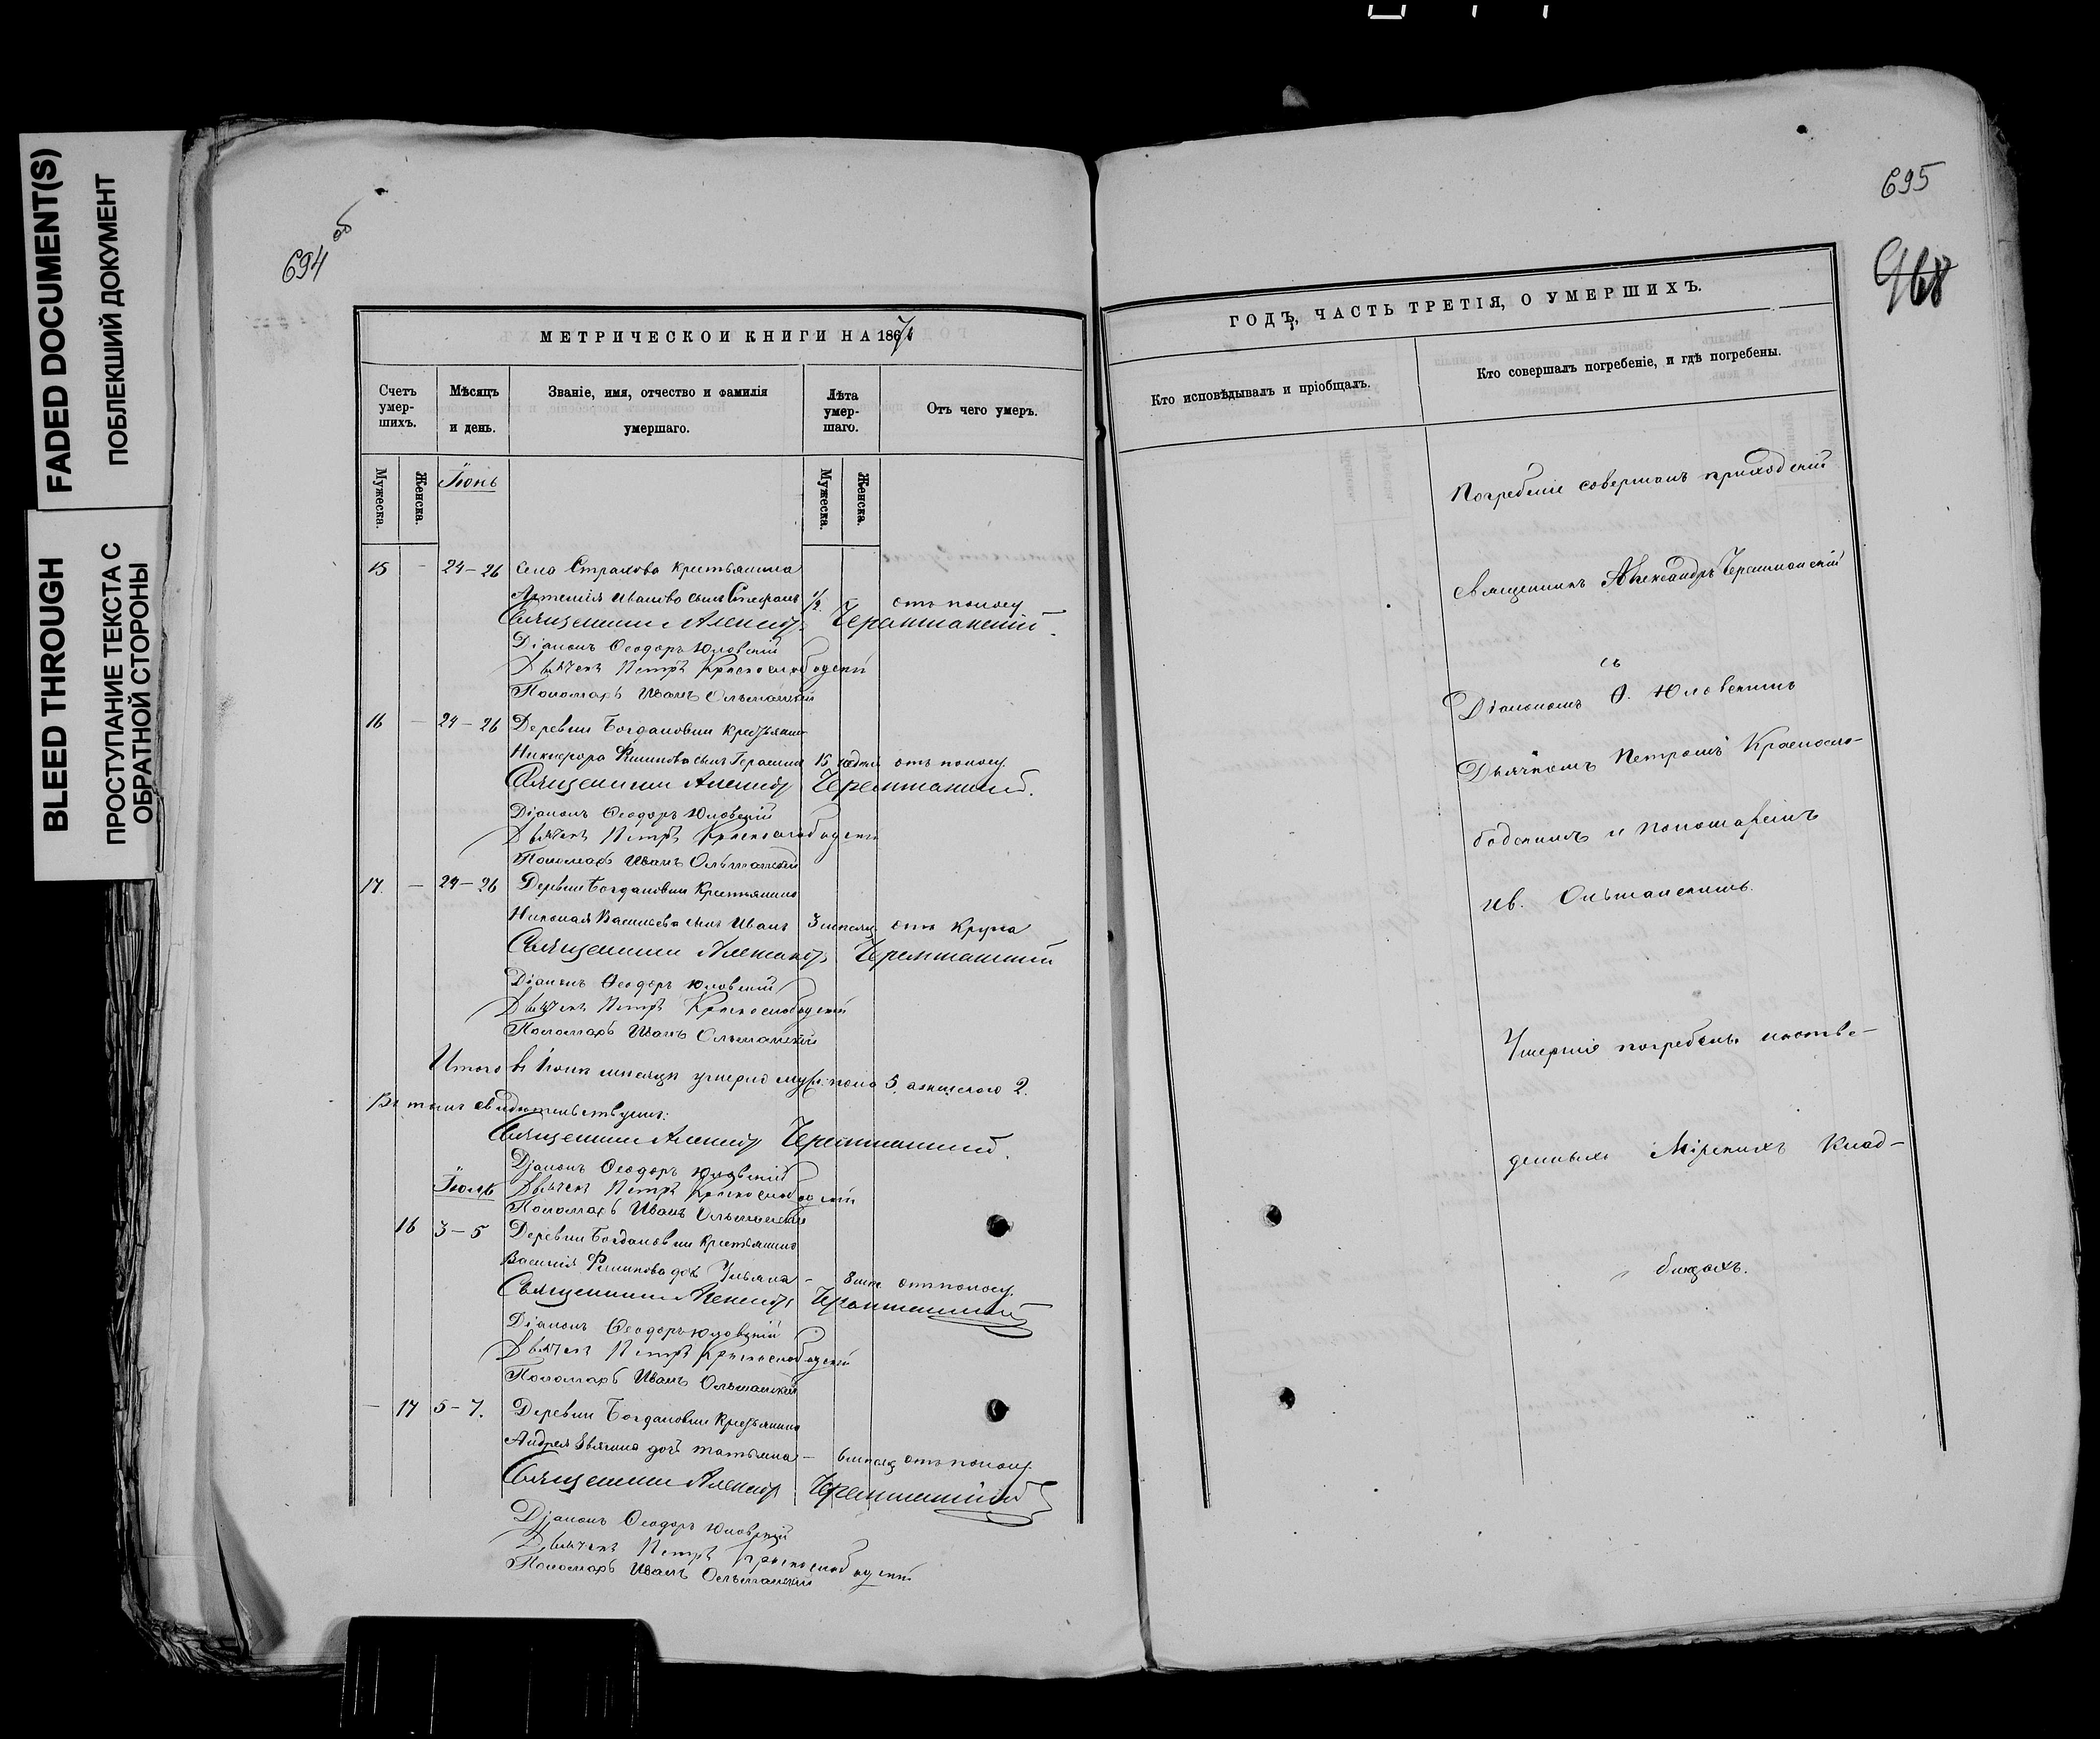 FADED DOCUMENT(S)
ПОБЛЕКШИЙ ДОКУМЕНТ
BLEED THROUGH
ПРОСТУПАНИЕ ТЕКСТА С
ОБРАТНОЙ СТОРОНЫ
694 об
МЕТРИЧЕСКОЙ КНИГИ НА 1871
Счетъ умер-шихъ.
Мѣсяцъ и день.
Званіе, имя, отчество и фамилія умершаго.
Лѣта умер-шаго.
Отъ чего умеръ.
Мужеска.
Женска.
Іюнь
Мужеска.
Женска.
15 - 24-26 Села Страхова крестьянина
Артемія Иванова сынъ Стефанъ 1/2 отъ поносу
Священникъ Александръ Черемшанскій.
Діаконъ Ѳеодоръ Юловскій
Дьячекъ Петръ Краснослободскій
Пономарь Иванъ Ольшанскій
16 - 24-26 Деревни Богдановки крестьянина
Никифора Филипова сынъ Герасимъ 15 недѣль отъ поносу.
Священникъ Александръ Черемшанскій.
Діаконъ Ѳеодоръ Юловскій
Дьячекъ Петръ Краснослободскій
Пономарь Иванъ Ольшанскій
17. - 24-26 Деревни Богдановки крестьянина
Николая Васильева сынъ Иванъ 3 месяц. отъ крупа
Священникъ Александръ Черемшанскій
Діаконъ Ѳеодоръ Юловскій
Дьячекъ Петръ Краснослободскій
Пономарь Иванъ Ольшанскій
Итого въ Іюнѣ мѣсяцѣ умерло муж. пола 5. а женскаго 2.
Въ томъ свидѣтельствуемъ:
Священникъ Александръ Черемшанскій.
Діаконъ Ѳеодоръ Юловскій
Іюль Дьячекъ Петръ Краснослободскій
Пономарь Иванъ Ольшанскій
16 3-5 Деревни Богдановки крестьянина
Василія Филипова дочь Ульяна - 8 мес. отъ поносу.
Священникъ Александръ Черемшанскій
Діаконъ Ѳеодоръ Юловскій
Дьячекъ Петръ Краснослободскій
Пономарь Иванъ Ольшанскій
- 17 5-7. Деревни Богдановки крестьянина
Андрея дочь Татьяна - 6 месяц отъ поносу.
Священникъ Александръ Черемшанскій
Діаконъ Ѳеодоръ Юловскій
Дьячекъ Петръ Краснослободскій
Пономарь Иванъ Ольшанскій
695
968
ГОДЪ, ЧАСТЬ ТРЕТІЯ, О УМЕРШИХЪ.
Кто исповѣдывалъ и пріобщалъ.
Кто совершалъ погребеніе, и гдѣ погребены.
Погребеніе совершалъ приходскій
Священникъ Александръ Черемшанскій
съ
Діакономъ Ѳ. Юловскимъ
Дьячкомъ Петромъ Красносло-
бодскимъ и Пономаремъ
Ив. Ольшанскимъ.
Умершіе погребены на отве-
денныхъ Мірскихъ Клад-
бищахъ.